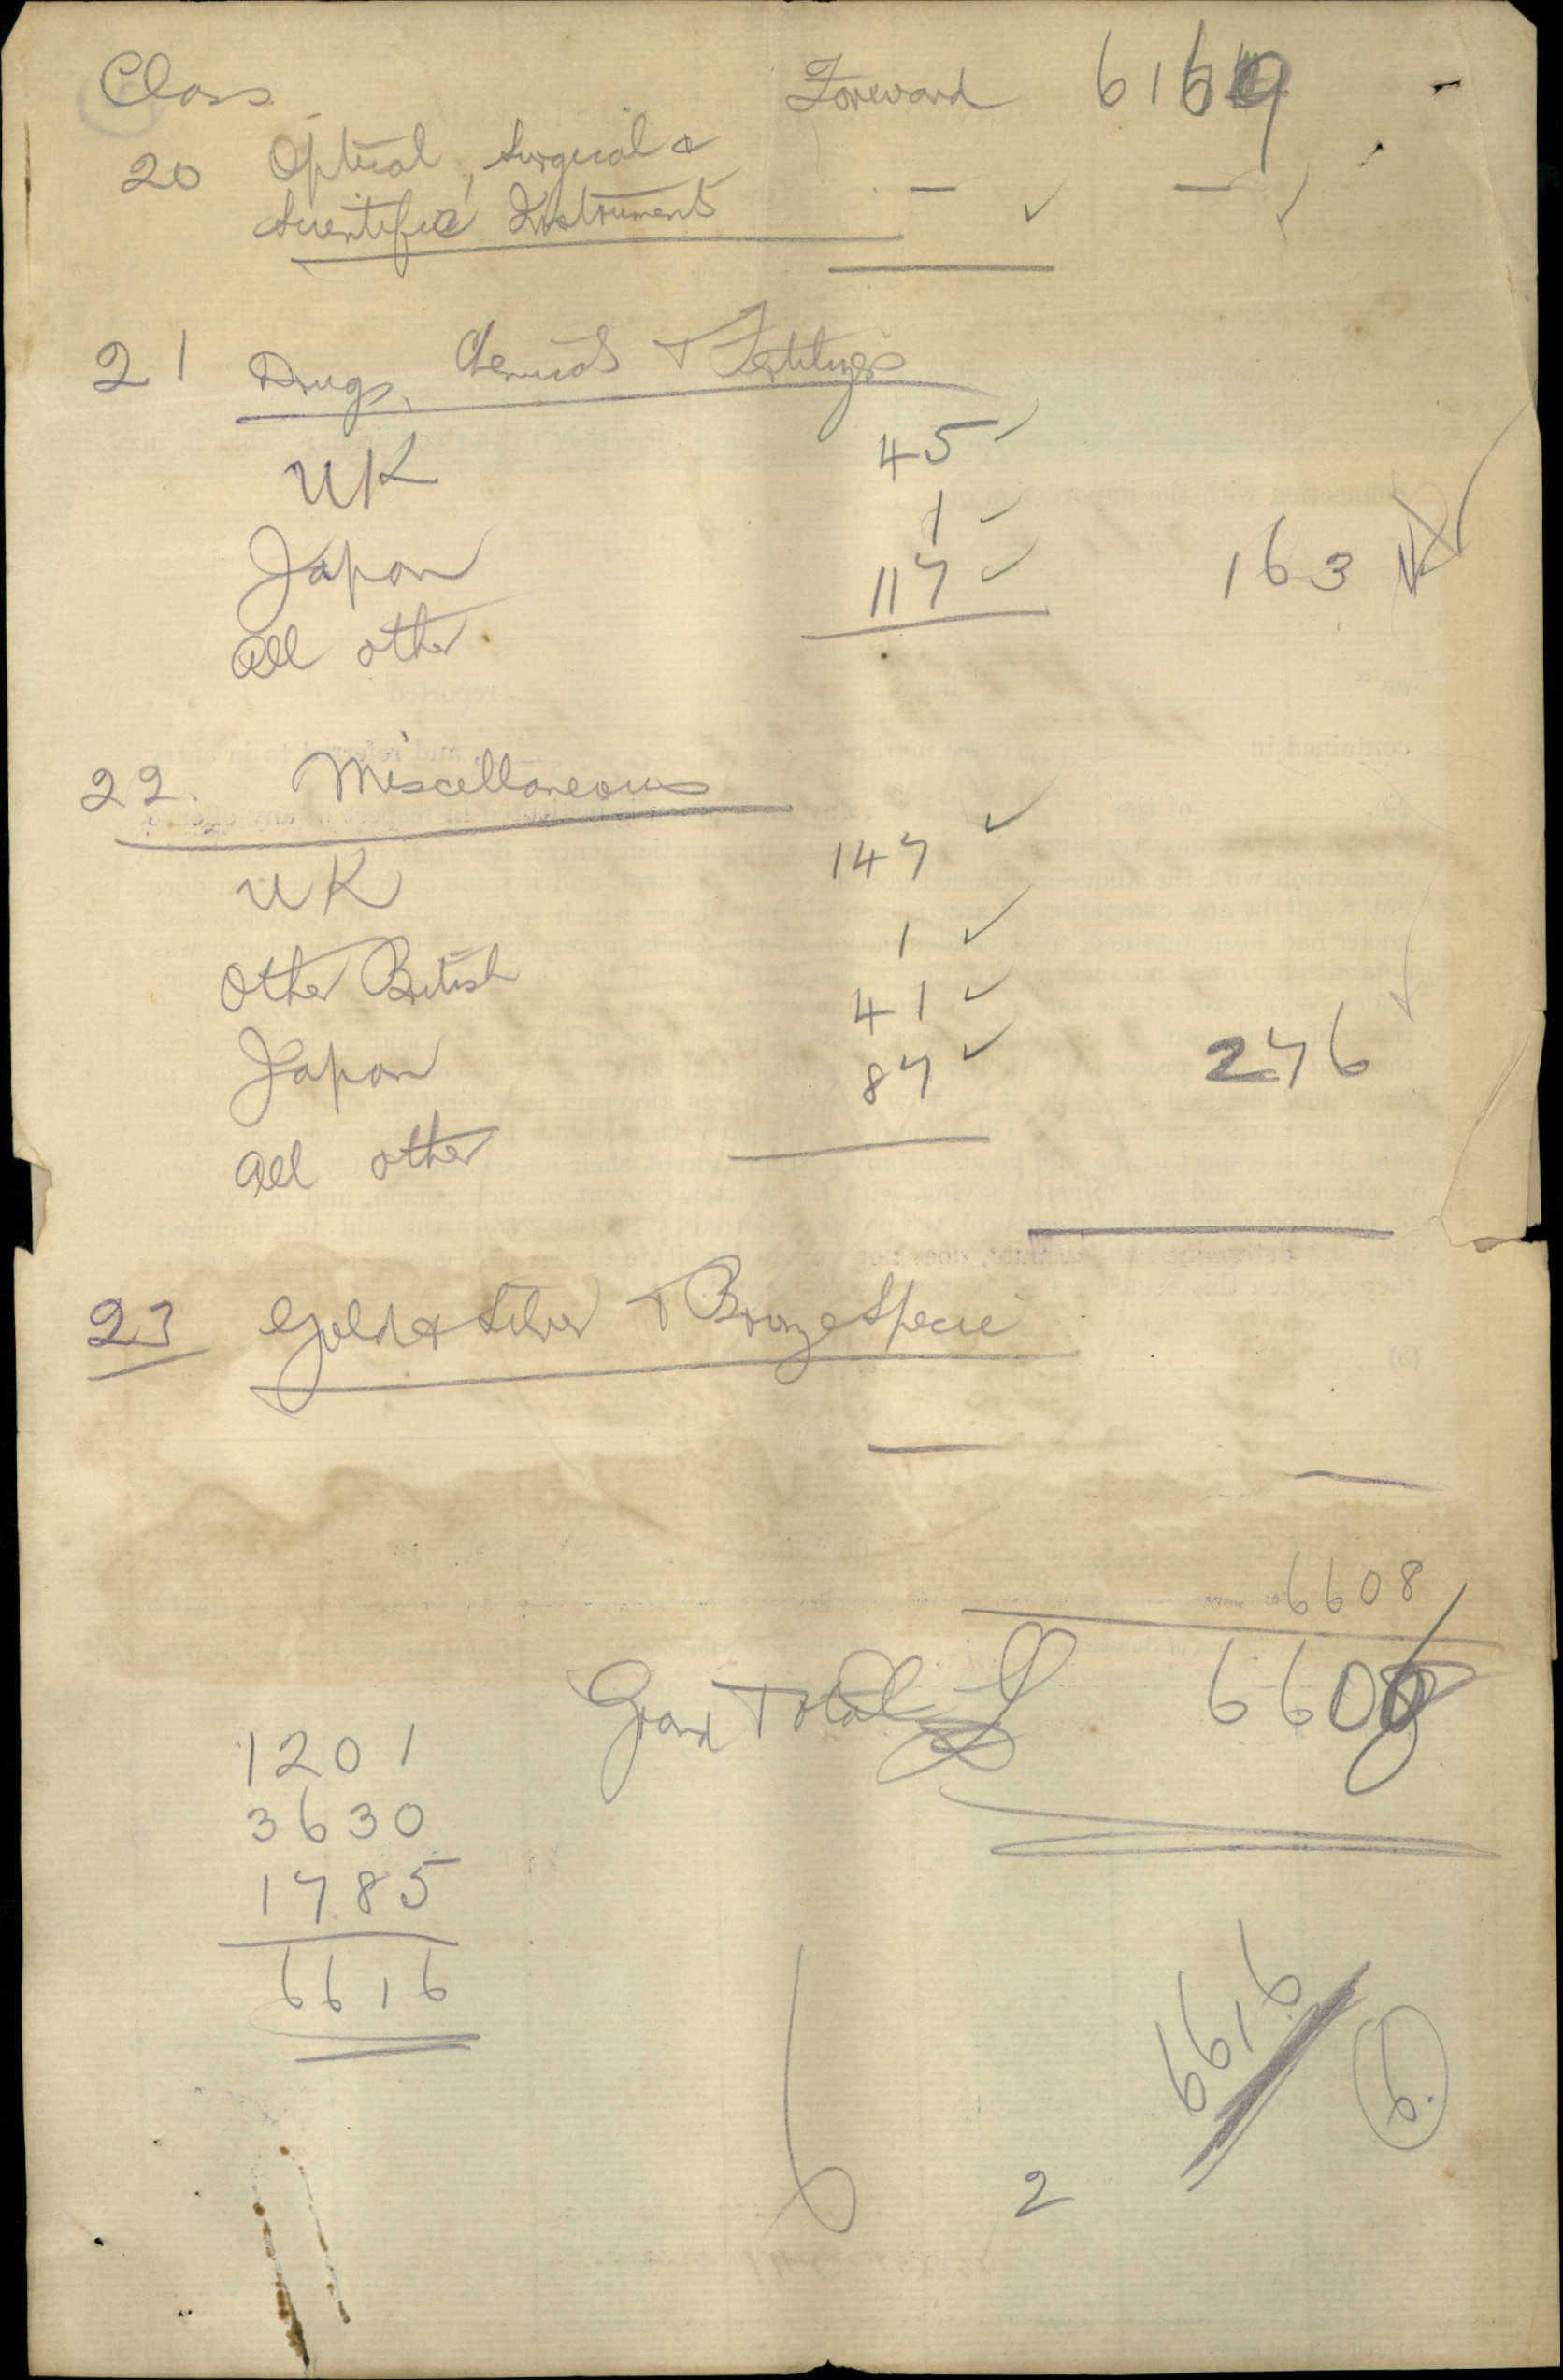 Class Forward 6169
20 Optical, Surgical &
Scientific Instruments — ✓ — ✓
21 Drugs, Chemicals + Fertilizers
UK 45 ✓
Japan 1 ✓
All other 117 ✓ 163
22. Miscellaneous
UK 147 ✓
Other British 1 ✓
Japan 41 ✓
All other 87 ✓ 276
23 Gold & Silver + Bronze Specie
— —
6608
Grand Total £ 6608
1201
3630
1785
6616
6616
6.
6
2